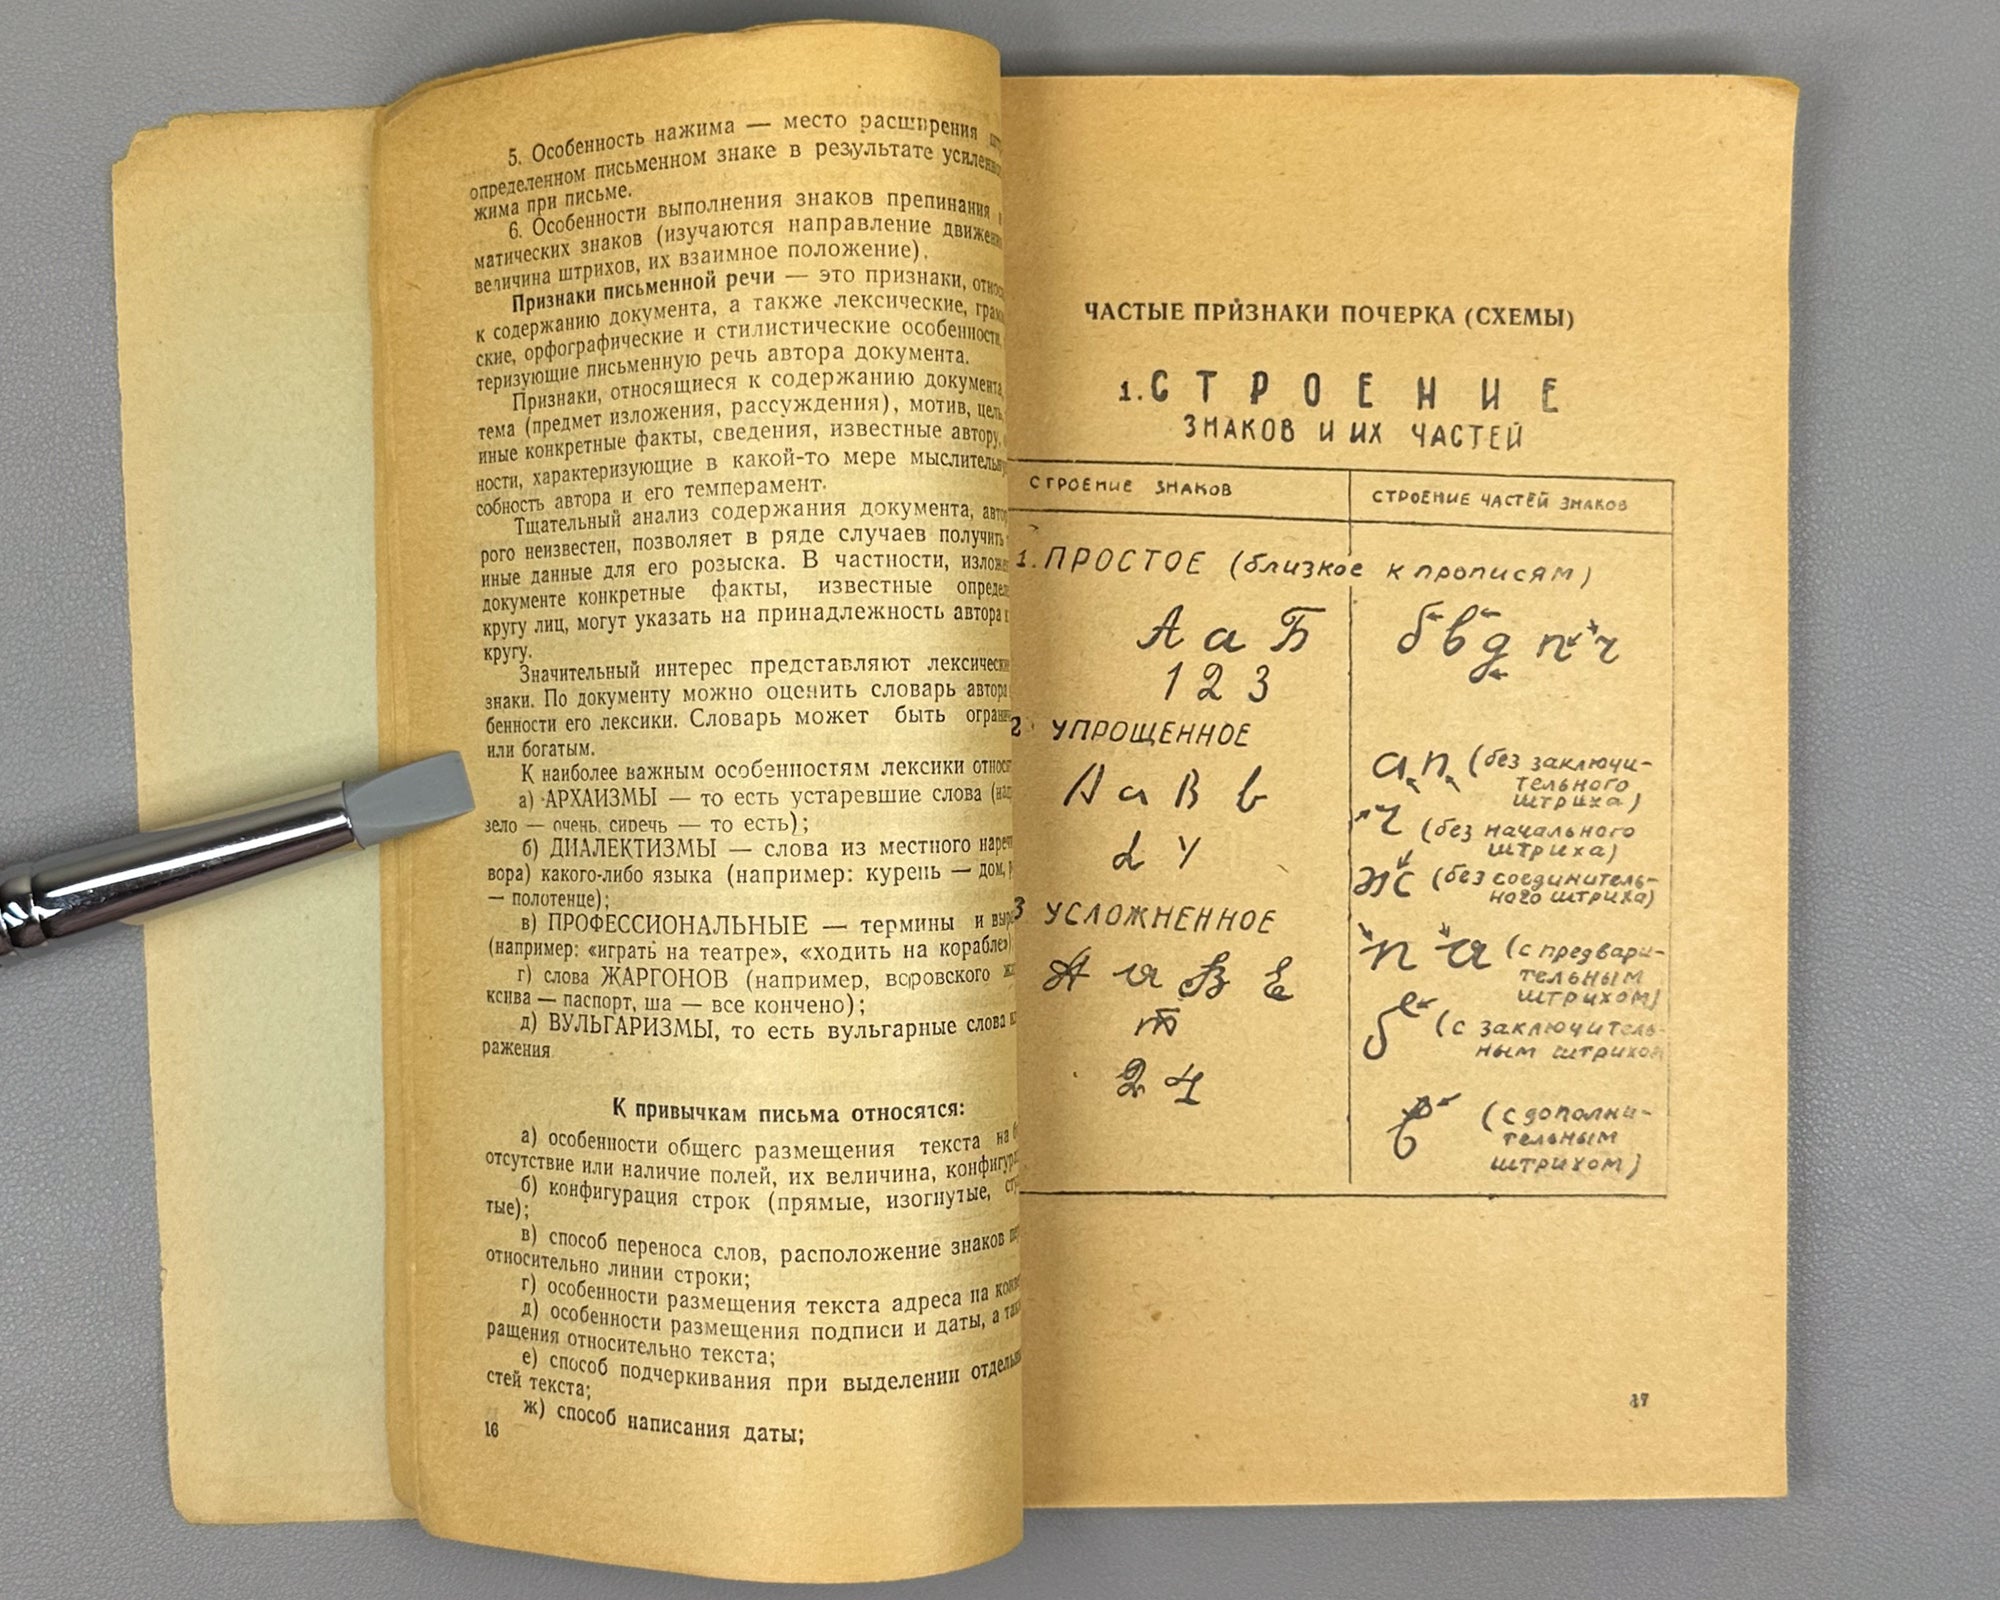 5. Особенность нажима — место расширения
определенном письменном знаке в результате
жима при письме.
6. Особенности выполнения знаков препинания
матических знаков (изучаются направление
величина штрихов, их взаимное положение).
Признаки письменной речи — это признаки,
к содержанию документа, а также лексические,
ские, орфографические и стилистические особенности,
теризующие письменную речь автора документа.
Признаки, относящиеся к содержанию документа,
тема (предмет изложения, рассуждения), мотив, цель,
иные конкретные факты, сведения, известные автору,
ности, характеризующие в какой-то мере
собность автора и его темперамент.
Тщательный анализ содержания документа,
рого неизвестен, позволяет в ряде случаев получить
иные данные для его розыска. В частности,
документе конкретные факты, известные
кругу лиц, могут указать на принадлежность автора к
кругу.
Значительный интерес представляют
знаки. По документу можно оценить словарь автора
бенности его лексики. Словарь может быть
или богатым.
К наиболее важным особенностям лексики
а) АРХАИЗМЫ — то есть устаревшие слова
зело — очень, сиречь — то есть);
б) ДИАЛЕКТИЗМЫ — слова из местного
вора) какого-либо языка (например: курень — дом,
— полотенце);
в) ПРОФЕССИОНАЛЬНЫЕ — термины и
(например: «играть на театре», «ходить на корабле»)
г) слова ЖАРГОНОВ (например, воровского
ксива — паспорт, ша — все кончено);
д) ВУЛЬГАРИЗМЫ, то есть вульгарные слова
ражения
К привычкам письма относятся:
а) особенности общего размещения текста на
отсутствие или наличие полей, их величина,
б) конфигурация строк (прямые, изогнутые,
тые);
в) способ переноса слов, расположение знаков
относительно линии строки;
г) особенности размещения текста адреса на
д) особенности размещения подписи и даты, а
ращения относительно текста;
е) способ подчеркивания при выделении
стей текста;
ж) способ написания даты;
16
ЧАСТЫЕ ПРИЗНАКИ ПОЧЕРКА (СХЕМЫ)
1. СТРОЕНИЕ
ЗНАКОВ И ИХ ЧАСТЕЙ
СТРОЕНИЕ ЗНАКОВ
СТРОЕНИЕ ЧАСТЕЙ ЗНАКОВ
1. ПРОСТОЕ (близкое к прописям)
А а Б
1 2 3
б в д п ч
2. УПРОЩЕННОЕ
А а В в
d Ч
а п (без заключи-
тельного
штриха)
ч (без начального
штриха)
ж (без соединитель-
ного штриха)
3 УСЛОЖНЕННОЕ
А а В Е
т
2 4
п а (с предвари-
тельным
штрихом)
б (с заключитель-
ным штрихом
в (с дополни-
тельным
штрихом)
17